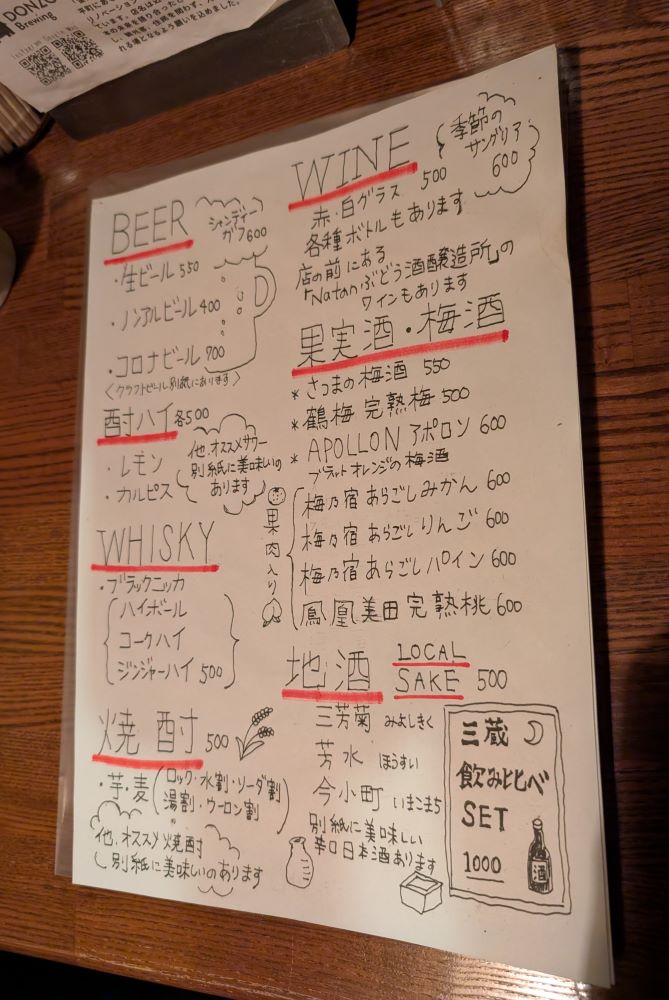 DONZO
Brewing
BEER
シャンディー
ガフ600
・生ビール 550
・ノンアルビール 400
・コロナビール 700
〈クラフトビール別紙にあります〉
酎ハイ 各500
・レモン
・カルピス
他、オススメサワー
別紙に美味しいの
あります
WHISKY
・ブラックニッカ
ハイボール
コークハイ
ジンジャーハイ 500
焼酎 500
・芋・麦(ロック・水割・ソーダ割
湯割・ウーロン割)
他、オススメ焼酎
別紙に美味しいのあります
WINE
季節の
サングリア
600
赤・白グラス 500
各種ボトルもあります
店の前にある
「Natanぶどう酒醸造所」の
ワインもあります
果実酒・梅酒
* さつまの梅酒 550
* 鶴梅 完熟梅 500
* APOLLON アポロン 600
ブラッドオレンジの梅酒
果肉入り
梅乃宿 あらごしみかん 600
梅乃宿 あらごしりんご 600
梅乃宿 あらごしパイン 600
鳳凰美田 完熟桃 600
地酒 LOCAL
SAKE 500
三芳菊 みよしきく
芳水 ほうすい
今小町 いまこまち
別紙に美味しい
辛口日本酒あります
三蔵
飲み比べ
SET
1000
酒